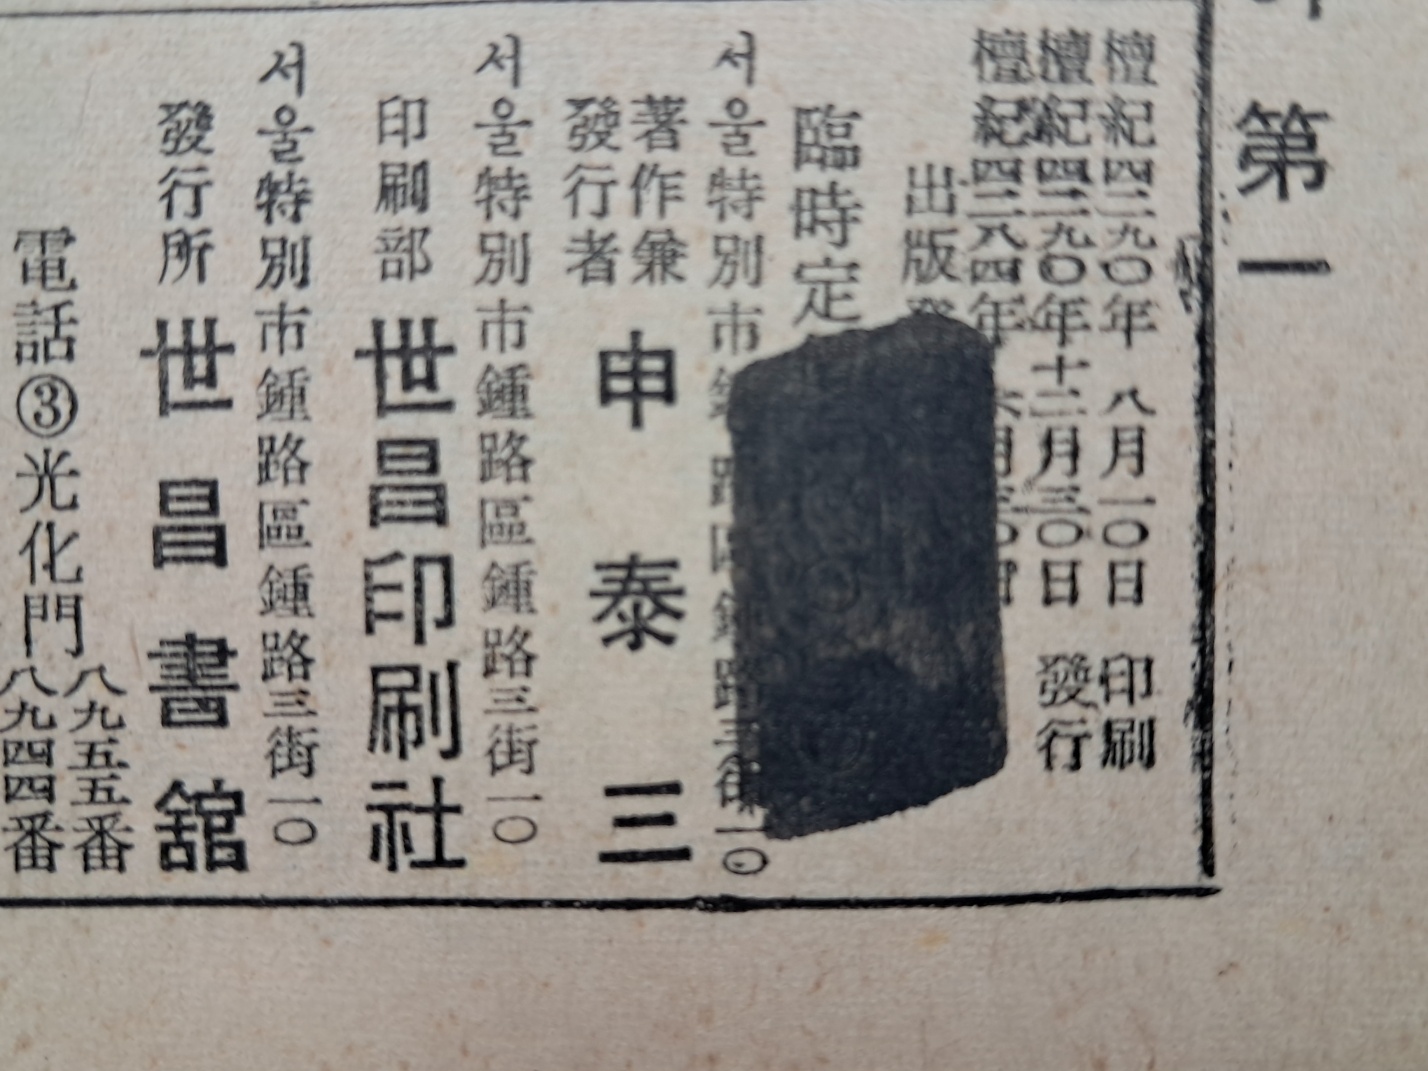 第一
檀紀四二九〇年 八月一〇日 印刷
檀紀四二九〇年十二月三〇日 發行
檀紀四二八四年 六月三〇日
出版
臨時定
서울特別市鍾路區鍾路三街一〇
著作兼
發行者
申泰三
서울特別市鍾路區鍾路三街一〇
印刷部 世昌印刷社
서울特別市鍾路區鍾路三街一〇
發行所 世昌書舘
電話③光化門
八九五五番
八九四四番